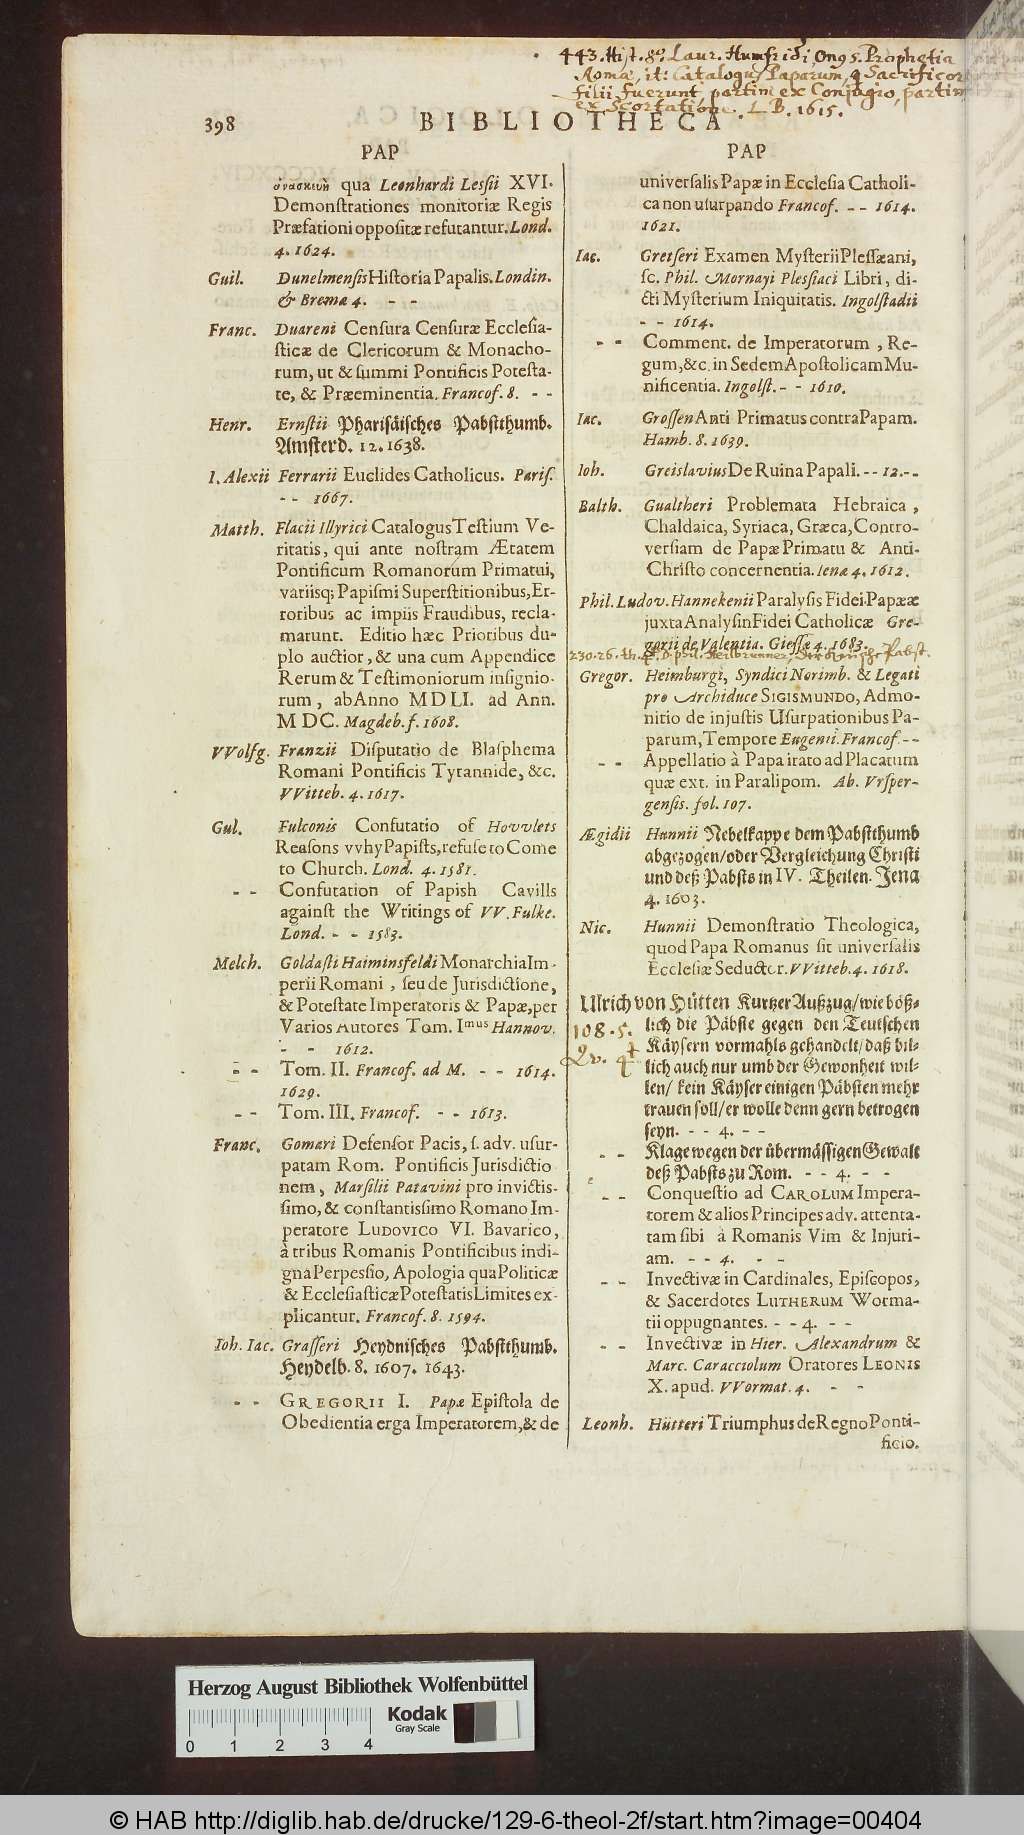 443. Hist. 8o. Laur. Humfridi, Prophetia
Romæ, it: Catalogus Paparum, q Sacrificor
filii fuerunt partim ex Conjugio, partim
ex Scortatione. L. B. 1615.
398
BIBLIOTHECA
PAP
qua Leonhardi Lessii XVI.
Demonſtrationes monitoriæ Regis
Præfationi oppoſitæ refutantur. Lond.
4. 1624.
Guil. Dunelmenſis Hiſtoria Papalis. Londin.
& Bremæ 4. - -
Franc. Duareni Cenſura Cenſuræ Eccleſia-
ſticæ de Clericorum & Monacho-
rum, ut & ſummi Pontificis Poteſta-
te, & Præeminentia. Francof. 8. - -
Henr. Ernſtii Phariſäiſches Pabſtthumb.
Amſterd. 12. 1638.
I. Alexii Ferrarii Euclides Catholicus. Pariſ.
- - 1667.
Matth. Flacii Illyrici Catalogus Teſtium Ve-
ritatis, qui ante noſtram Ætatem
Pontificum Romanorum Primatui,
variisq; Papiſmi Superſtitionibus, Er-
roribus ac impiis Fraudibus, recla-
marunt. Editio hæc Prioribus du-
plo auctior, & una cum Appendice
Rerum & Teſtimoniorum inſignio-
rum, ab Anno MDLI. ad Ann.
MDC. Magdeb. f. 1608.
VVolfg. Franzii Diſputatio de Blaſphema
Romani Pontificis Tyrannide, &c.
VVitteb. 4. 1617.
Gul. Fulconis Confutatio of Hovvlets
Reaſons vvhy Papiſts, refuſe to Come
to Church. Lond. 4. 1581.
- - Confutation of Papish Cavills
againſt the Writings of VV. Fulke.
Lond. - - 1583.
Melch. Goldaſti Haiminsfeldi Monarchia Im-
perii Romani, ſeu de Jurisdictione,
& Poteſtate Imperatoris & Papæ, per
Varios Autores Tom. Imus Hannov.
- - 1612.
- - Tom. II. Francof. ad M. - - 1614.
1629.
- - Tom. III. Francof. - - 1613.
Franc. Gomari Defenſor Pacis, ſ. adv. uſur-
patam Rom. Pontificis Jurisdictio
nem, Marſilii Patavini pro invictis-
ſimo, & conſtantisſimo Romano Im-
peratore LUDOVICO VI. Bavarico,
à tribus Romanis Pontificibus indi-
gna Perpeſſio, Apologia qua Politicæ
& Eccleſiaſticæ Poteſtatis Limites ex-
plicantur. Francof. 8. 1594.
Ioh. Iac. Graſſeri Heydniſches Pabſtthumb.
Heydelb. 8. 1607. 1643.
- - GREGORII I. Papæ Epiſtola de
Obedientia erga Imperatorem, & de
PAP
univerſalis Papæ in Eccleſia Catholi-
ca non uſurpando Francof. - - 1614.
1621.
Iac. Gretſeri Examen Myſterii Pleſſæani,
ſc. Phil. Mornayi Pleſſiaci Libri, di-
cti Myſterium Iniquitatis. Ingolſtadii
- - 1614.
- - Comment. de Imperatorum, Re-
gum, &c. in Sedem Apoſtolicam Mu-
nificentia. Ingolſt. - - 1610.
Iac. Groſſen Anti Primatus contra Papam.
Hamb. 8. 1639.
Ioh. Greislavius De Ruina Papali. - - 12. - -
Balth. Gualtheri Problemata Hebraica,
Chaldaica, Syriaca, Græca, Contro-
verſiam de Papæ Primatu & Anti-
Chriſto concernentia. Ienæ 4. 1612.
Phil. Ludov. Hannekenii Paralyſis Fidei Papææ
juxta Analyſin Fidei Catholicæ Gre-
gorii de Valentia. Gieſſæ 4. 1683.
230.26. th. Pabst.
Gregor. Heimburgi, Syndici Norimb. & Legati
pro Archiduce SIGISMUNDO, Admo-
nitio de injuſtis Uſurpationibus Pa-
parum, Tempore Eugenii. Francof. - -
- - Appellatio à Papa irato ad Placatum
quæ ext. in Paralipom. Ab. Vrſper-
genſis. fol. 107.
Ægidii Hunnii Nebelkappe dem Pabſthumb
abgezogen/ oder Vergleichung Chriſti
und deß Pabſts in IV. Theilen. Jena
4. 1603.
Nic. Hunnii Demonſtratio Theologica,
quod Papa Romanus ſit univerſalis
Eccleſiæ Seductor. VVitteb. 4. 1618.
Ulrich von Hütten Kurtzer Außzug/ wie böß-
108. 5. lich die Päbſte gegen den Teutſchen
Qv. 4 Käyſern vormahls gehandelt/ daß bil-
lich auch nur umb der Gewonheit wil-
len/ kein Käyſer einigen Päbſten mehr
trauen ſoll/ er wolle denn gern betrogen
ſeyn. - - 4. - -
- - Klage wegen der übermäſſigen Gewalt
deß Pabſts zu Rom. - - 4. - -
- - Conqueſtio ad CAROLUM Impera-
torem & alios Principes adv. attenta-
tam ſibi à Romanis Vim & Injuri-
am. - - 4. - -
- - Invectivæ in Cardinales, Epiſcopos,
& Sacerdotes LUTHERUM Worma-
tii oppugnantes. - - 4. - -
- - Invectivæ in Hier. Alexandrum &
Marc. Caracciolum Oratores LEONIS
X. apud. VVormat. 4. - -
Leonh. Hütteri Triumphus de Regno Ponti-
ficio.
Herzog August Bibliothek Wolfenbüttel
Kodak
Gray Scale
0 1 2 3 4
© HAB http://diglib.hab.de/drucke/129-6-theol-2f/start.htm?image=00404